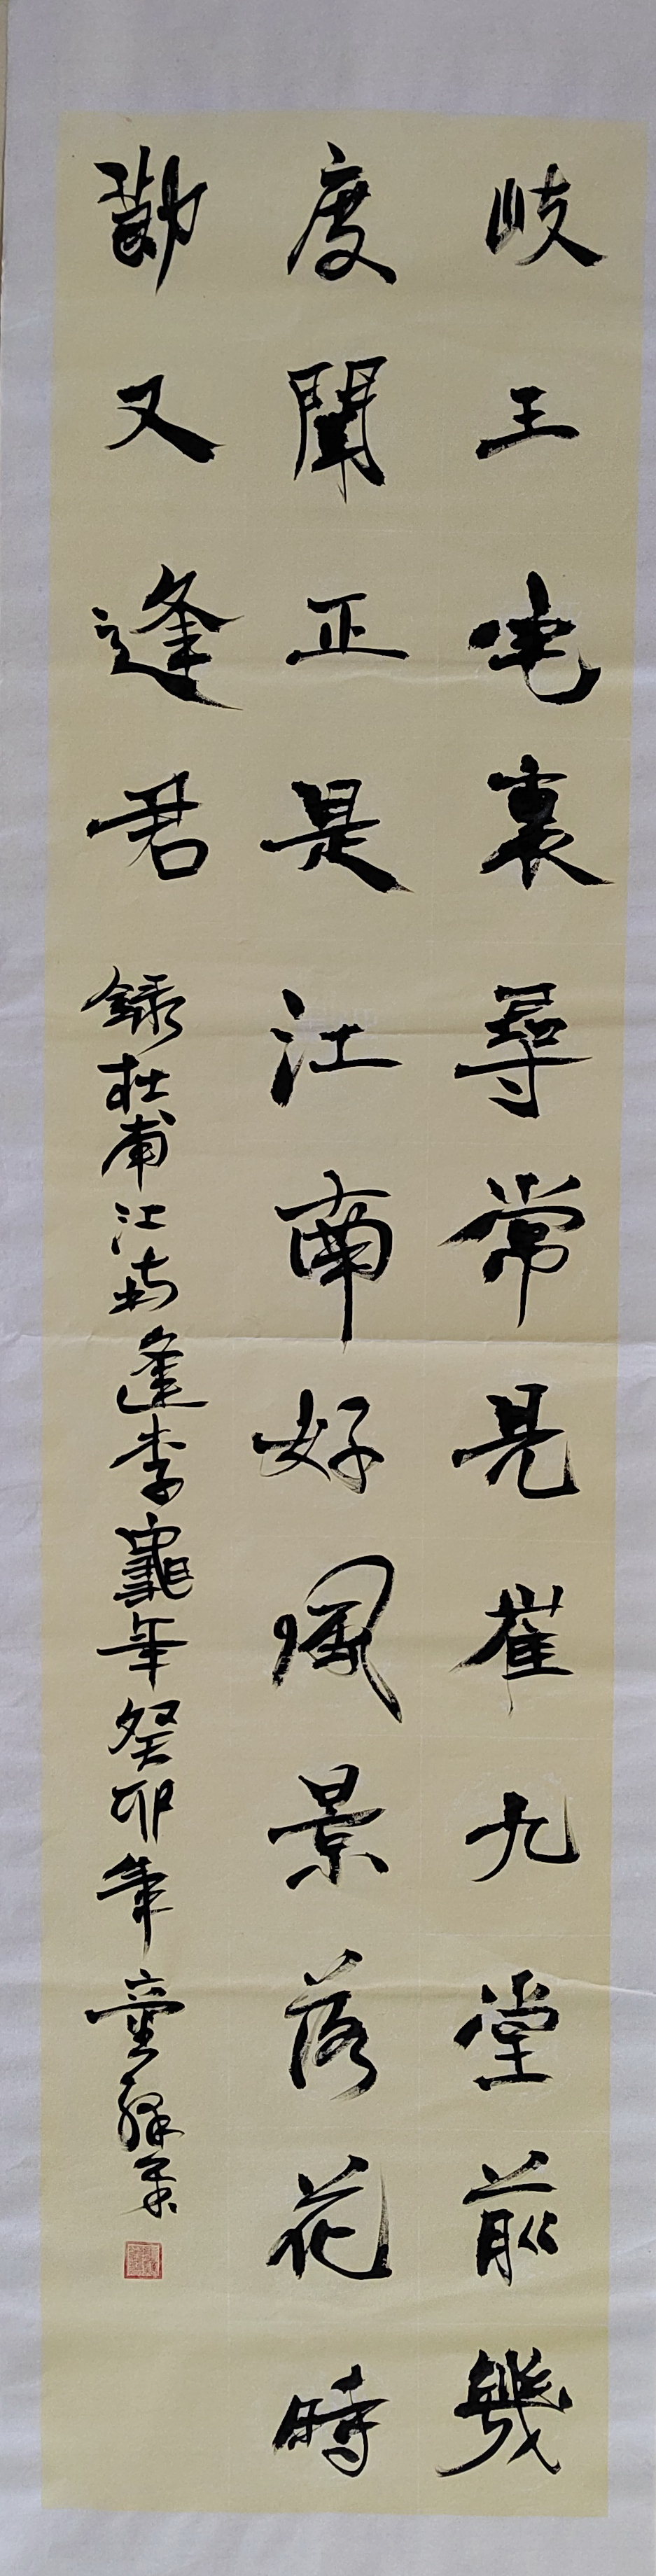 岐王宅裏尋常見崔九堂前幾
度聞正是江南好風景落花時
節又逢君 錄杜甫江南逢李龜年癸卯年童